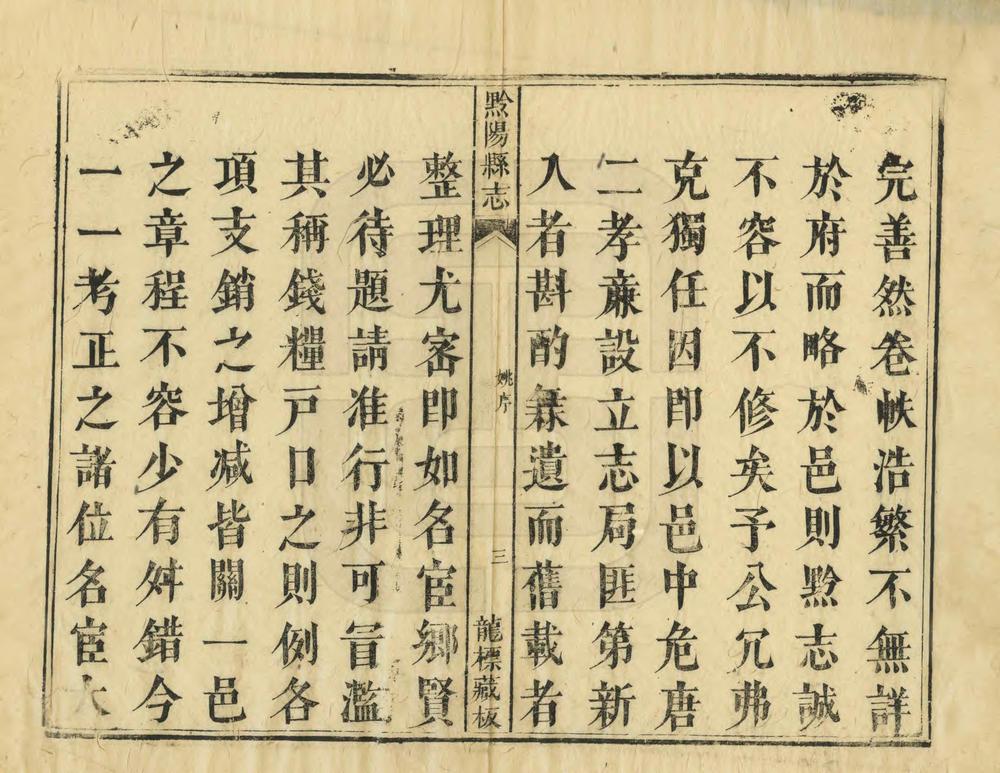 完善然卷帙浩繁不無詳
於府而略於邑則黔志誠
不容以不修矣予公冗弗
克獨任因即以邑中危唐
二孝亷設立志局匪第新
入者斟酌無遺而舊載者
黔陽縣志
姚序
三
龍標藏板
整理尤宻即如名宦鄉賢
必待題請准行非可冒濫
其稱錢糧戸口之則例各
項支銷之增减皆關一邑
之章程不容少有舛錯今
一一考正之諸位名宦大